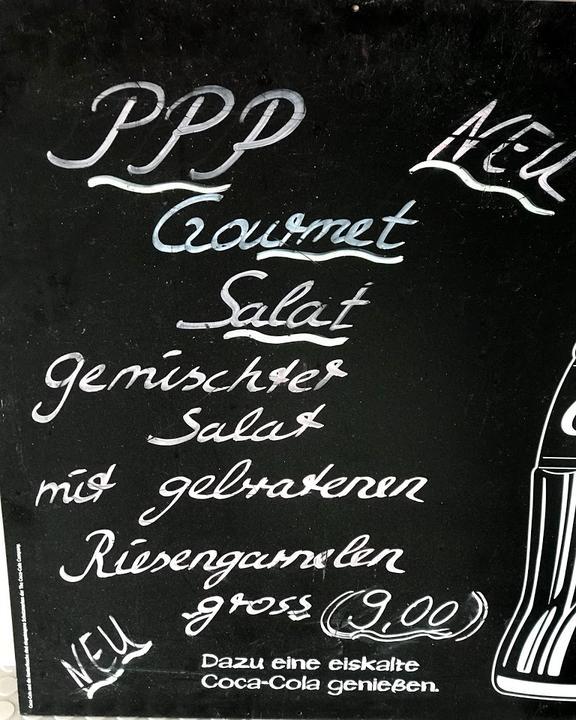 PPP
NEU
Gourmet
Salat
gemischter
Salat
mit gebratenen
Riesengarnelen
gross (9,00)
NEU
Dazu eine eiskalte
Coca-Cola genießen.